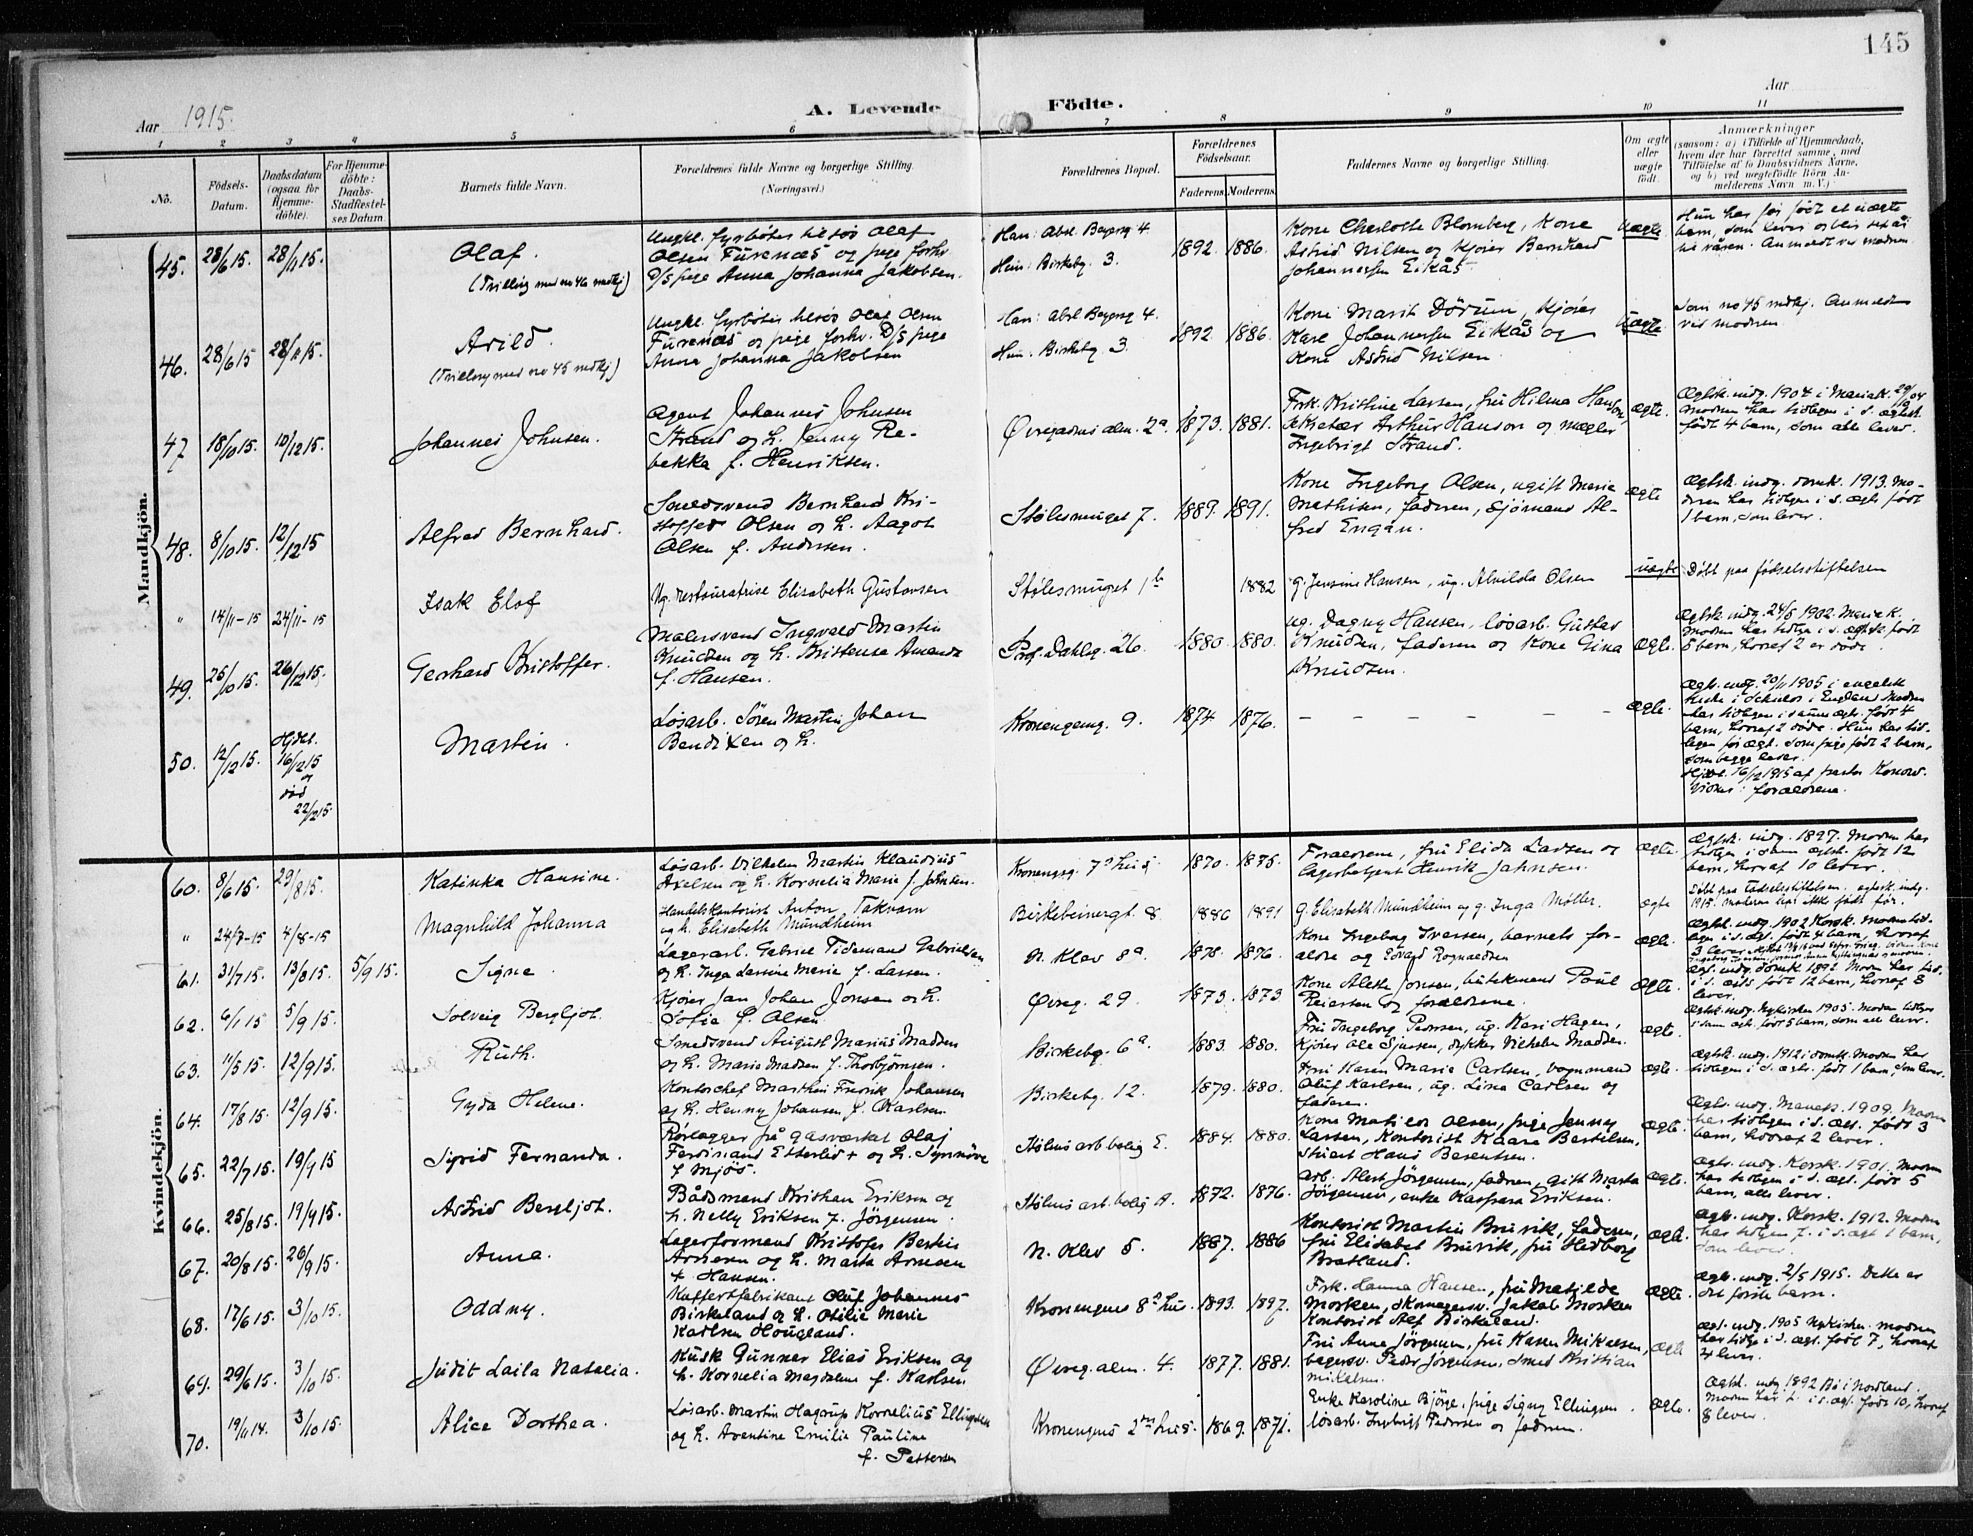 145
Aar 1915.
A. Levende Födte.
Aar
1 2 3 4 5 6 7 8 9 10 11
No.
Födsels-Datum.
Daabsdatum (ogsaa for Hjemme-döbte).
For Hjemme-döbte: Daabs-Stadfestel-ses Datum.
Barnets fulde Navn.
Forældrenes fulde Navne og borgerlige Stilling. (Næringsvei.)
Forældrenes Bopæl.
Forældrenes Födselsaar.
Faderens. Moderens.
Faddernes Navne og borgerlige Stilling.
Om ægte eller uægte födt.
Anmærkninger
(saasom: a) i Tilfælde af Hjemmedaab,
hvem der har forrettet samme, med
Tilföielse af to Daabsvidners Navne,
og b) ved uægtefödte Börn An-
melderens Navn m. V.)
Mandkjön.
45. 28/6 15. 28/11 15.
Olaf.
(Tvilling med no 46 mdkj)
Ungkl. fyrböter Olaf
Olsen Furenæs og pige forhv.
D/S pige Anna Johanna Jakobsen.
Han: Absl. Beyersg 4.
Hun: Birkebg. 3.
1892. 1886.
Kone Charlotte Blomberg, Kone
Astrid Nilsen og Kjøier Bernhard
Johannessen Eikås
Uægte
Hun har før født et uægte
barn, som lever
Anmeldt ved modren
46. 28/6 15 28/11 15.
Arild.
(Tvilling med no 45 mdkj.)
Ungkl. fyrböter Olaf Olsen
Furenæs og pige forhv. D/S pige
Anna Johanna Jakobsen
Han: Absl Beyersg 4.
Hun: Birkebg 3.
1892. 1886.
Kone Marit Dörum, Kjøier
Karl Johannessen Eikås og
Kone Astrid Nilsen.
Uægte
Som no 45 mdkj. Anmeldt
ved modren
47 18/10 15. 10/12 15.
Johannes Johnsen.
Agent Johannes Johnsen
Strand og h. Jenny Re-
bekka f. Henriksen.
Øvregadens alm. 2a.
1873. 1881.
Frk. Kristine Larsen, fru Hilma Hanson,
sekretær Arthur Hanson og mægler
Ingebrigt Strand.
Ægte.
Ægtsk. indg. 1904 i Mariak.
modren har tidligere i s. ægtsk.
født 4 barn, som alle lever.
48. 8/10 15. 12/12 15
Alfred Bernhard.
Smedsvend Bernhard Kri-
stoffer Olsen og h. Aagot
Olsen f. Andersen.
Stølesmuget 7.
1889. 1891.
Kone Ingeborg Olsen, ugift Marie
Mathisen, faderen, sjömand Al-
fred Engán.
Ægte
Ægtsk. indg. domk. 1913. Mo-
dren har tidligere i s. ægt. født
1 barn, som lever.
" 14/11-15 24/11-15
Isak Elof
Ug. restauratrise Elisabeth Gustavsen
Stølesmuget 1b
1882
g. Jensine Hansen, ug. Alvilda Olsen
uægte
Døbt paa fødselsstiftelsen
49. 25/10 15. 26/12 15.
Gerhard Kristoffer.
Malersvend Ingvald Martin
Knudsen og h. Kristense Amanda
f. Hansen.
Prof. Dahlsg. 26.
1880. 1880.
Ug. Dagny Hansen, løsarb. Gustav
Knudsen, faderen og Kone Gina
Knudsen.
Ægte.
Ægtsk. indg. 24/5 1902. Mariak.
Modren har tidlige i s. ægtsk. født
5 barn, hvoraf 2 er døde.
50. 12/12 15. Hjdbt. 16/12 15 og död 22/12 15.
Martin.
Løsarb. Sören Martin Johan
Bendixen og h.
Kroneng­eng. 9.
1874 1876.
– – – – – –
Ægte.
Ægts. indg. 20/11 1905 i engelsk
Kirke i England Modren
har tidligere i samme ægt. født 4
barn, hvoraf 2 døde. Hun har tid-
ligere før ægt. som pige født 2 barn,
som begge lever.
Hjdbt. 16/12 1915 af pastor Konow.
Vidner: forældrene.
Kvindekjön.
60. 8/6 15. 29/8 15.
Katinka Hansine.
Løsarb. Vilhelm Martin Klaudius
Axelsen og h. Kornelia Marie f. Johnsen.
Kronengsg. 7a hus
1870. 1875.
Forældrene, fru Elida Larsen og
lagerbetjent Henrik Jahnsen.
ægte.
Ægtsk. indg. 1897. Modren har
tidligere i sam ægt. født 12
barn, hvoraf 10 lever.
" 24/7-15 4/8-15
Magnhild Johanna
Handelskontorist Anton Takvam
og h. Elisabeth Mundheim
Birkebeinergt. 8.
1886 1891
g. Elisabeth Mundheim og g. Inga Møller.
ægte
Døbt paa Fødselsstiftelsen. ægtsk. indg.
1915. moderen har ikke født før.
61. 31/7 15. 13/8 15. 5/9 15.
Signe.
Lagerarb. Gabriel Tidemand Gabrielsen
og h. Inga Lassine Marie f. Larsen.
N. Klev 8a.
1878. 1876.
Kone Ingeborg Iversen, barnets for-
ældre og Edvard Rognaldsen
Ægte.
Ægtsk. indg. 1902 Korsk. Modren tid-
62. 6/1 15 5/9 15.
Solveig Bergljot.
Kjøier Jan Johan Jonsen og h.
Sofie f. Olsen.
Øvreg. 29.
1873. 1873
Kone Alette Jonsen, Poul
Reiersen og forældrene.
Ægte.
Ægt. indg. domk. 1892. Modren har tid.
i s. ægts født 12 barn, hvoraf 8
lever.
63. 11/5 15. 12/9 15.
Ruth.
Smedsvend August Marius Madsen
og h. Marie Madsen f. Thorbjørnsen.
Birkebg. 6a.
1883. 1880.
Fru Ingeborg Pedersen, ug. Kari Hagen,
Kjøier Ole Sjursen, dykker Vilhelm Madsen.
Ægte.
Ægtsk. indg. Nykirken 1905. Modren tidligere
i sam ægt. født 5 barn, som alle lever.
64. 17/8 15. 12/9 15.
Gyda Helene.
Kontorchef Marthin Fredrik Johansen
og h. Henny Johansen f. Karlsen.
Birkebg. 12.
1879. 1880.
Fru Karen Marie Carlsen, vognmand
Oluf Karlsen, ug. Lina Carlsen og
faderen.
ægte.
Ægtsk. indg. 1912 i domk. Modren har
tidligere i s. ægt. født 1 barn, som lever.
65. 22/7 15. 19/9 15
Sigrid Fernanda.
Rørlægger på gasværket Olaf
Ferdinand Etterlid + og h. Synnöve
f. Mjös.
Stölens arb.bolig E.
1884. 1880.
Kone Matilde Olsen, pige Jenny
Larsen, Kontorist Kaare Bertelsen,
Stuert Hans Berentsen.
Ægte.
Ægts. indg. Mariak. 1909. Modren
har tidligere i s. ægt. født 3
barn, hvoraf 2 lever.
66. 25/8 15. 19/9 15.
Astrid Bergljot.
Bådsmand Kristian Eriksen og
h. Nelly Eriksen f. Jörgensen.
Stölens arb.bolig A.
1872. 1876.
Arb. Albert Jörgensen, fadren, gift Marta
Jörgensen, enke Kaspara Eriksen.
Ægte.
Ægts. indg. Korsk. 1901. Modren
har tidligere i s. ægt. født 5
barn, alle lever.
67. 20/8 15. 26/9 15.
Anna.
Lagerformand Kristofer Bertin
Arnesen og h. Marta Arnesen
f. Hansen.
N. Klev 5.
1887. 1886
Kontorist Martin Bruvik, faderen,
fru Elisabet Bruvik, fru Hedborg
Bratland.
Ægt.
Ægt. indg. Korsk. 1912. Modren
har tidligere f. i s. ægt 1 barn,
som lever.
68. 17/6 15. 3/10 15.
Oddny.
Kuffertfabrikant Oluf Johannes
Birkeland og h. Otilie Marie
Karlsen Hougland.
Kronengens 8a hus.
1893. 1897.
Frk. Hanna Hansen, fru Matilde
Morken, skomagersv. Jakob Morken
Kontorist Alf Birkeland.
Ægte.
Ægt. indg. 2/5 1915. Dette er
det første barn.
69. 29/6 15. 3/10 15.
Judit Laila Natalia.
Kusk Gunner Elias Eriksen og
h. Kornelia Magdalene f. Karlsen
Øvreg. alm. 4.
1877. 1881.
Fru Anna Jörgensen, fru Karen Mikalsen,
bagersv. Peder Jörgensen, smed Kristian
Mikalsen.
Ægte
Ægt. indg. 1905 Nykirken. modren
har tidlige i s. ægt. født 7, hvoraf
4 lever.
70. 19/11 14. 3/10 15.
Alice Dorthea.
Løsarb. Martin Hagrup Kornelius Ellingsen
og h. Aventine Emilie Pauline
f. Pettersen
Kronengens 2det hus.
1869. 1871.
Enke Karoline Bjørge, pige Signy Ellingsen.
løsarb. Ingbrigt Pedersen og fadren.
Ægte.
Ægtsk. indg 1892 Bö i Nordland.
Modren har t. i s. ægt. født 10, hvoraf
8 lever.